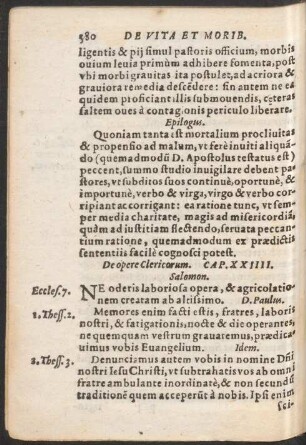 580 DE VITA ET MORIB.
ligentis & pij simul pastoris officium, morbis
ouium leuia primùm adhibere fomenta, post
vbi morbi grauitas ita postulet, ad acriora &
grauiora remedia descẽdere: sin autem ne ea
quidem proficiant illis submouendis, cęteras
saltem oues à contagionis periculo liberare.
Epilogus.
Quoniam tanta est mortalium procliuitas
& propensio ad malum, vt ferè inuiti aliquã-
do (quemadmodũ D. Apostolus testatus est)
peccent, summo studio inuigilare debent pa-
stores, vt subditos suos continuè, oportunè, &
importunè, verbo & virga, virgo & verbo cor-
ripiant ac corrigant: ea ratione tunc, vt sem-
per media charitate, magis ad misericordiã,
quàm ad iustitiam flectendo, seruata peccan-
tium ratione, quemadmodum ex prædictis
sententiis facilè cognosci potest.
De opere Clericorum. CAP. XXIIII.
Salomon.
Eccles. 7. NE oderis laboriosa opera, & agricolatio-
nem creatam ab altissimo. D. Paulus.
1. Thess. 2. Memores enim facti estis, fratres, laboris
nostri, & fatigationis, nocte & die operantes,
ne quemquam vestrũm grauaremus, prædica-
uimus vobis Euangelium. Idem.
2. Thess. 3. Denunciamus autem vobis in nomine Dñi
nostri Iesu Christi, vt subtrahatis vos ab omni
fratre ambulante inordinatè, & non secundũ
traditionẽ quem acceperũt à nobis. Ipsi enim
sci-